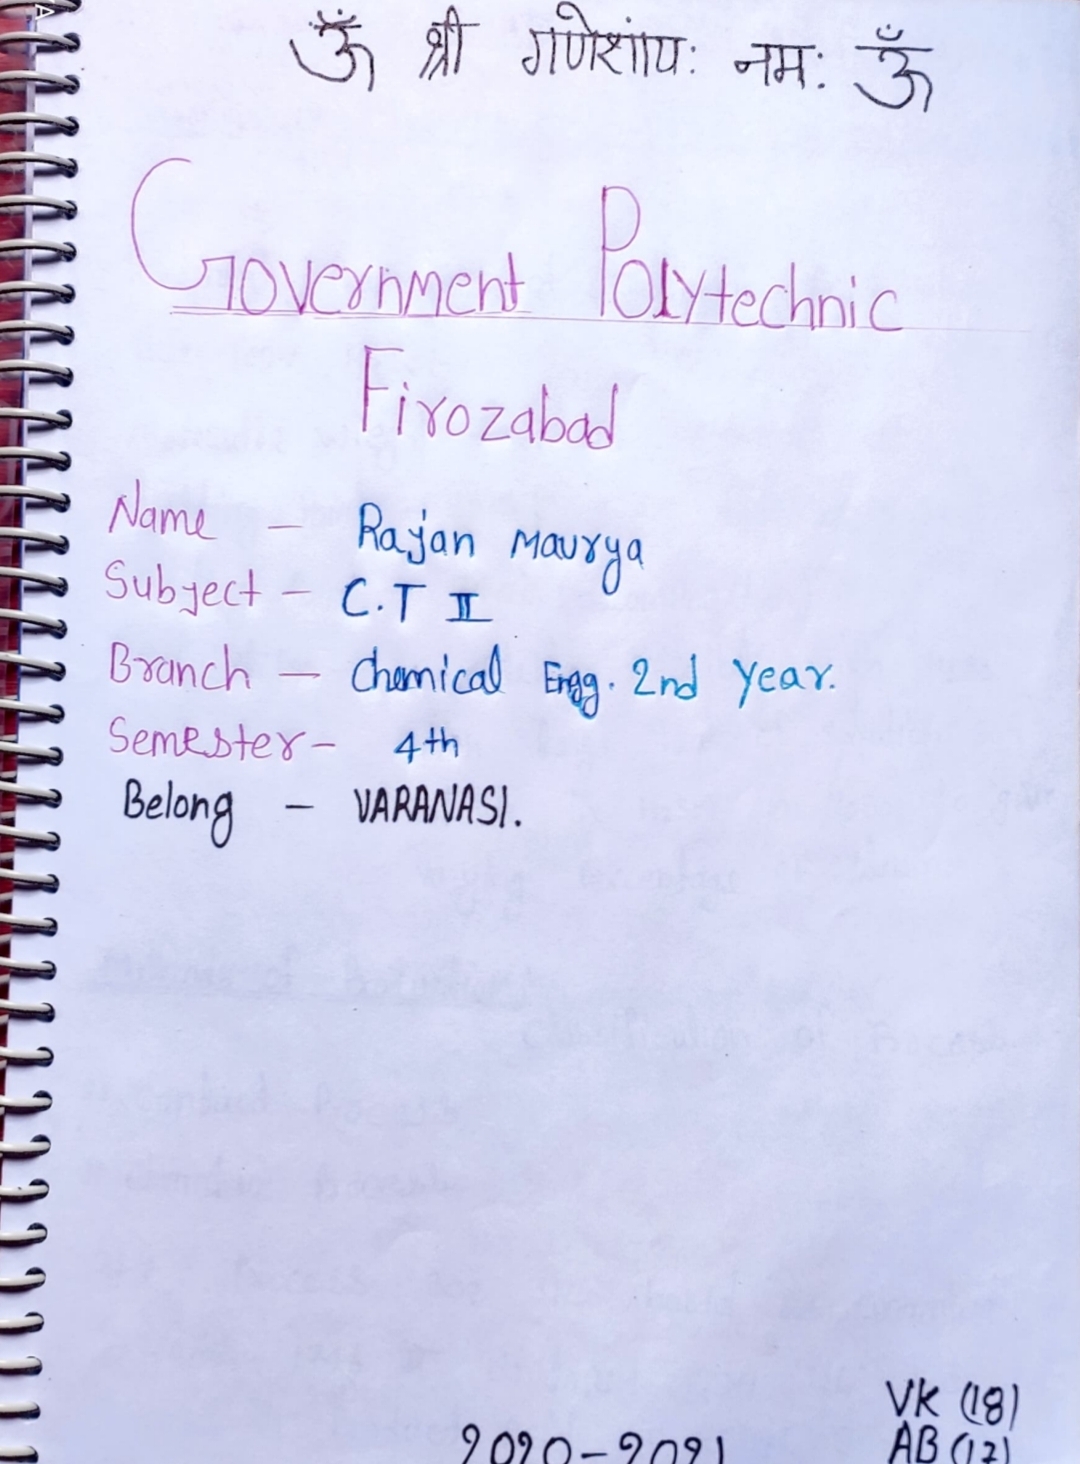 ॐ श्री गणेशाय: नम: ॐ
Government Polytechnic
Firozabad
Name - Rajan Maurya
Subject - C.T II
Branch - Chemical Engg. 2nd Year.
Semester - 4th
Belong - VARANASI.
VK (18)
AB (17)
2020-2021